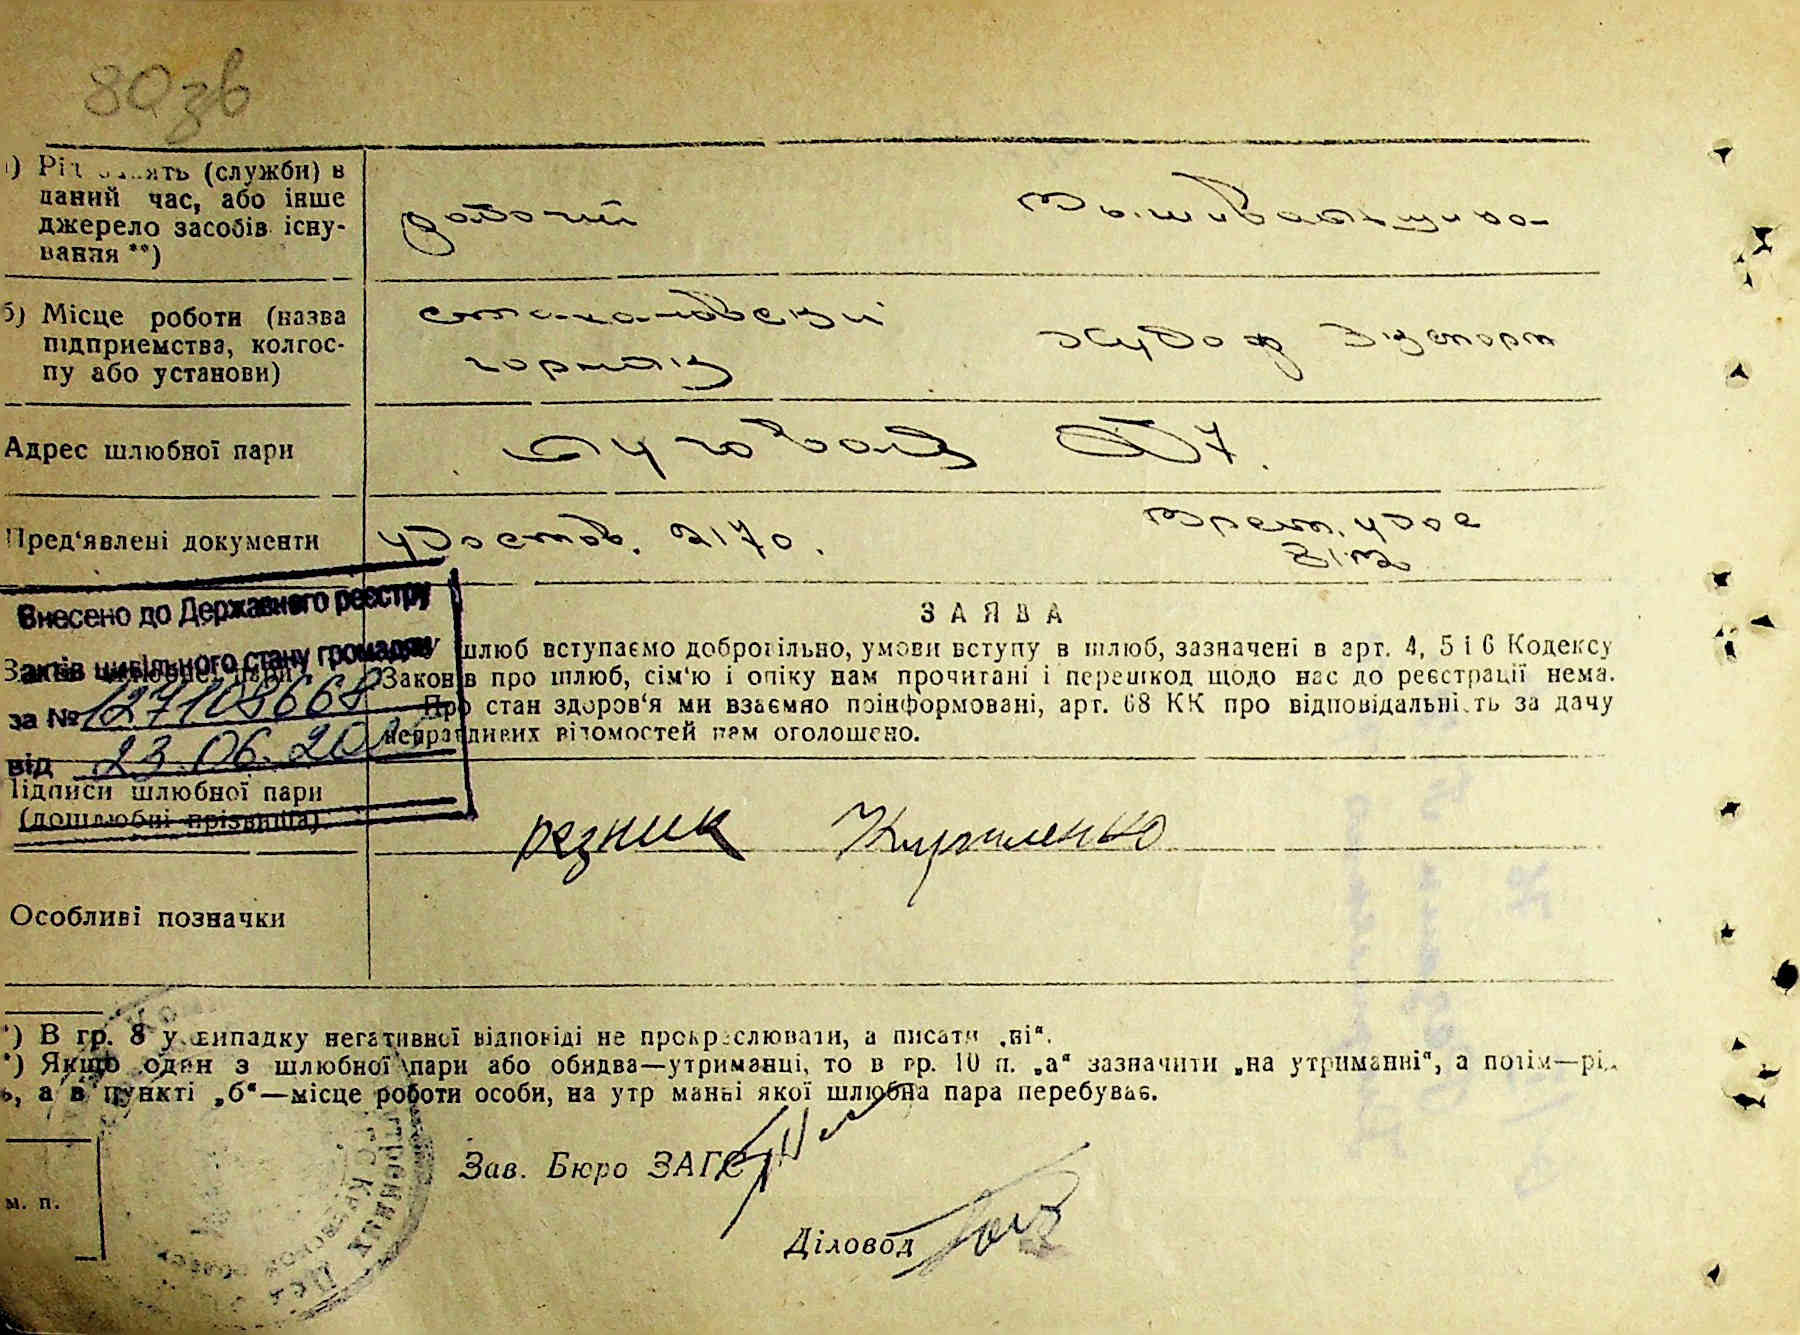 80 зв
Рід занять (служби) в
даний час, або інше
джерело засобів існу-
вання **)
рабочий
Вышивальщица
б) Місце роботи (назва
підприємства, колгос-
пу або установи)
стахановский
Худож Экспорт
Адрес шлюбної пари
Луговая 67.
Пред'явлені документи
удостов. 2170.
Врем. удос
Внесено до Державного реєстру
актів цивільного стану громадян
за № 127108668
від 23.06.20
ЗАЯВА
У шлюб вступаємо добровільно, умови вступу в шлюб, зазначені в арт. 4, 5 і 6 Кодексу
Законів про шлюб, сім'ю і опіку нам прочитані і перешкод щодо нас до реєстрації нема.
Про стан здоров'я ми взаємно поінформовані, арт. 68 КК про відповідальність за дачу
неправдивих відомостей нам оголошено.
Підписи шлюбної пари
(дошлюбні прізвища)
резник
Особливі позначки
*) В гр. 8 у випадку негативної відповіді не прокреслювати, а писати „ні“.
*) Якщо один з шлюбної пари або обидва—утриманці, то в гр. 10 п. „а“ зазначити „на утриманні“, а потім—рі
ь, а в пункті „б“—місце роботи особи, на утр манні якої шлюбна пара перебуває.
Зав. Бюро ЗАГС
м. п.
Діловод